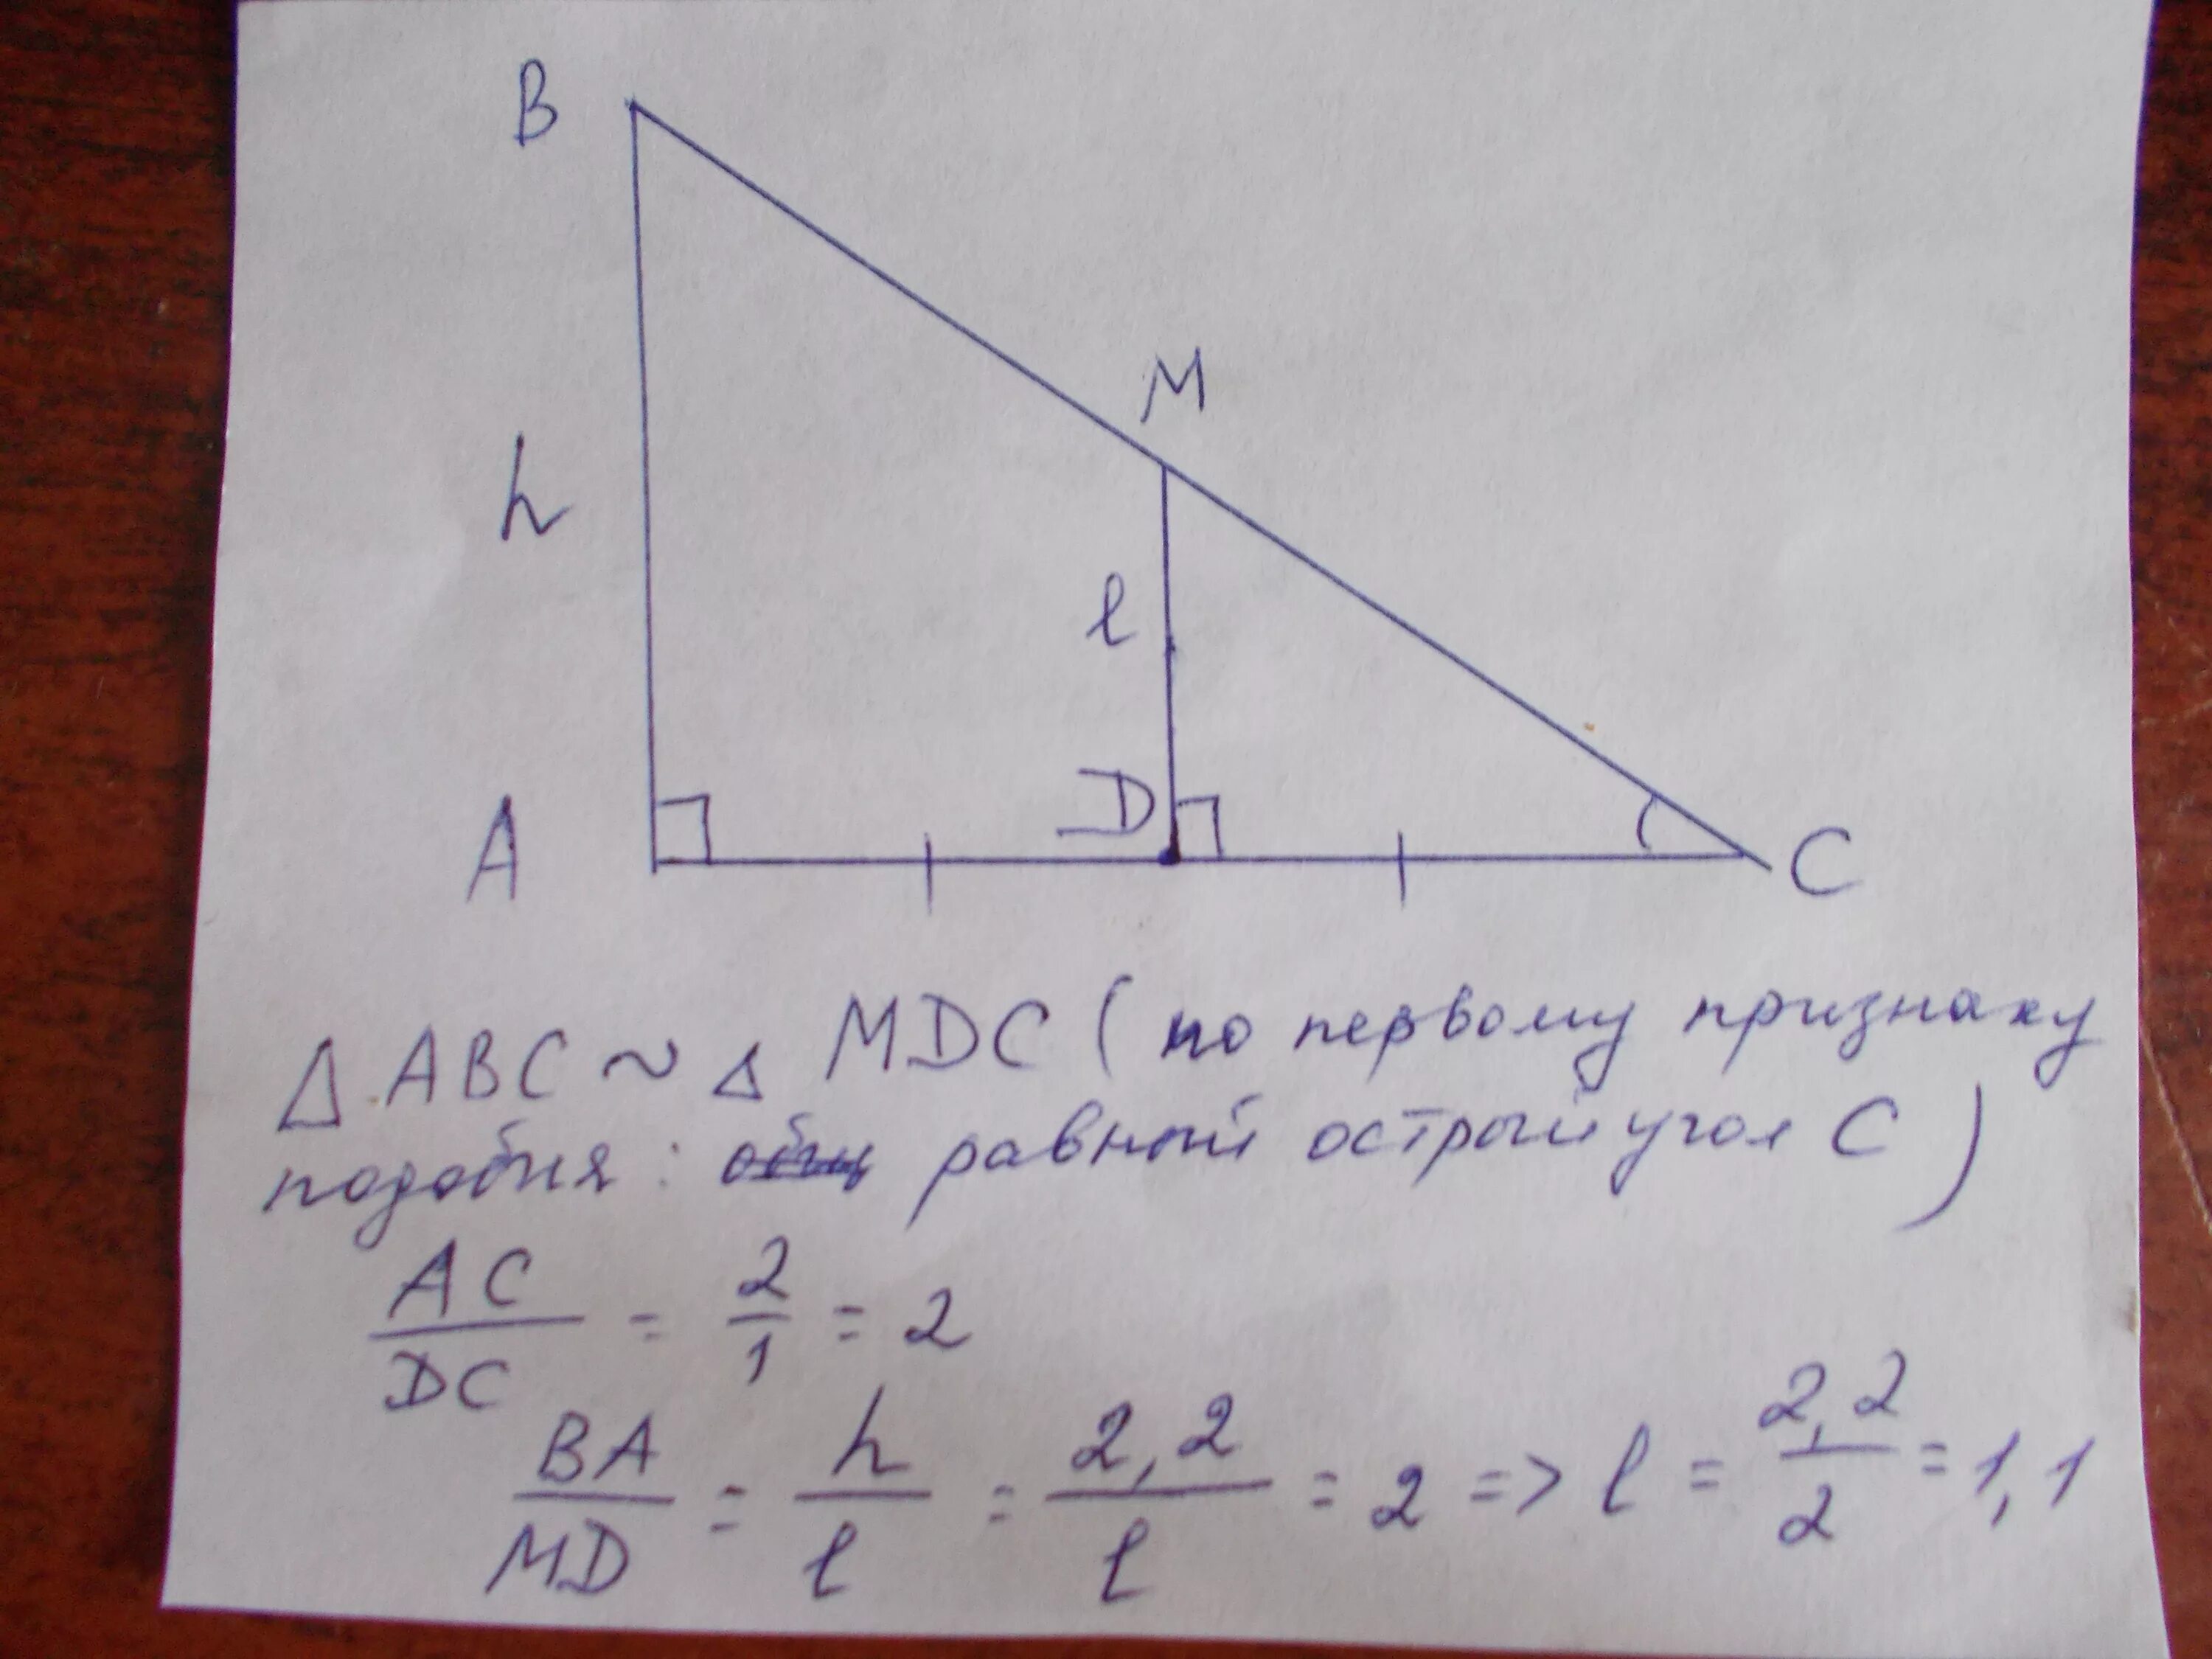 B
M
h
l
D
A
C
Δ ABC ~ Δ MDC ( по первому признаку
подобия : равный острый угол C )
AC/DC = 2/1 = 2
BA/MD = h/l = 2,2/l = 2 => l = 2,2/2 = 1,1